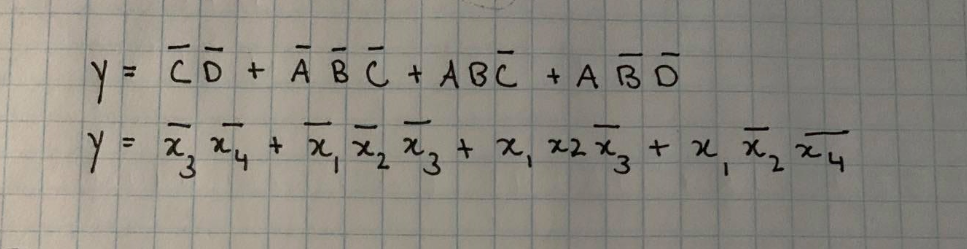 y = C̅ D̅ + A̅ B̅ C̅ + A B C̅ + A B̅ D̅
y = x̅₃ x̅₄ + x̅₁ x̅₂ x̅₃ + x₁ x2 x̅₃ + x₁ x̅₂ x̅₄